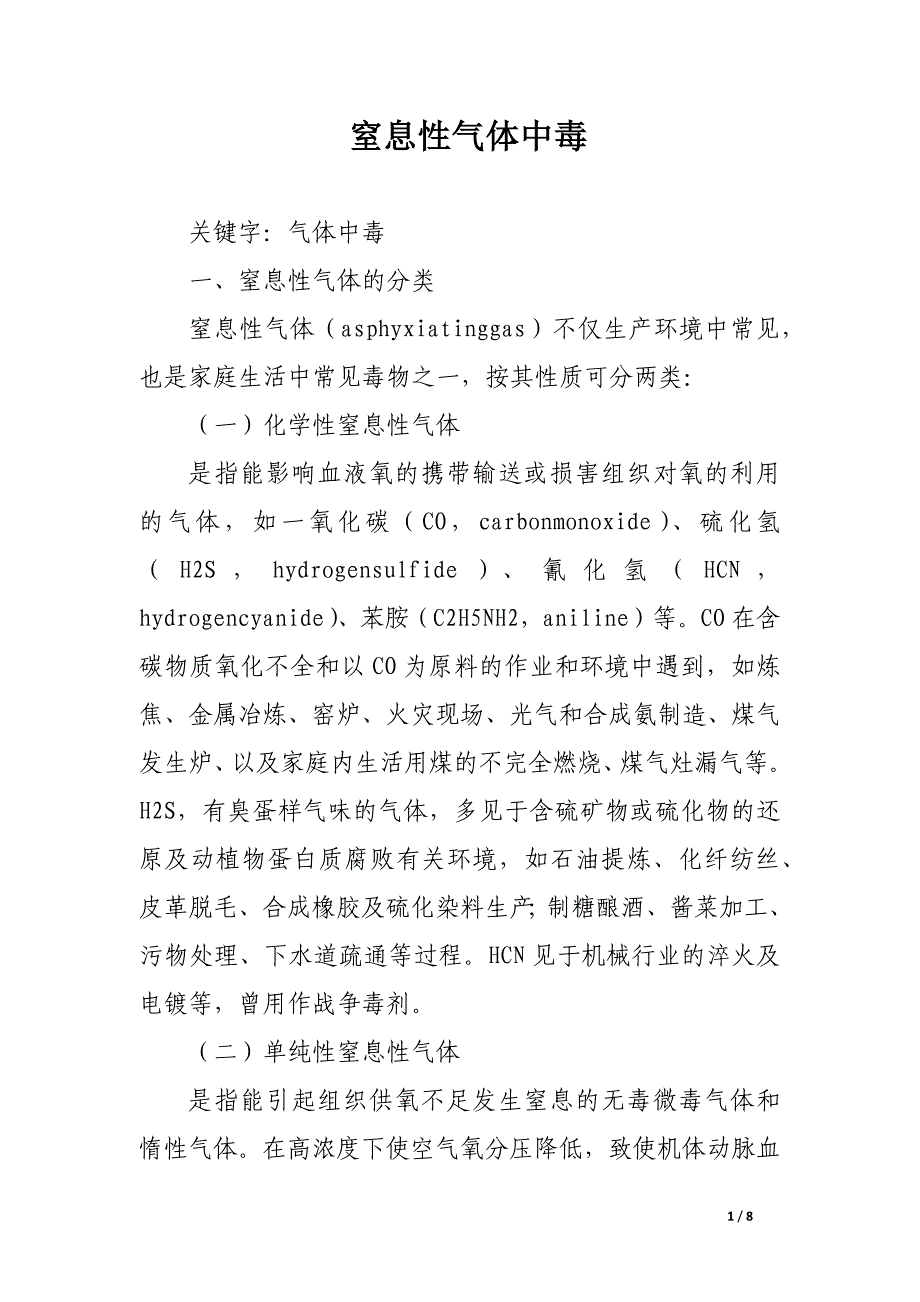 窒息性气体中毒
关键字：气体中毒
一、窒息性气体的分类
窒息性气体（asphyxiatinggas）不仅生产环境中常见，
也是家庭生活中常见毒物之一，按其性质可分两类：
（一）化学性窒息性气体
是指能影响血液氧的携带输送或损害组织对氧的利用
的气体，如一氧化碳（CO，carbonmonoxide）、硫化氢
（H2S，hydrogensulfide）、氰化氢（HCN，
hydrogencyanide）、苯胺（C2H5NH2，aniline）等。CO在含
碳物质氧化不全和以CO为原料的作业和环境中遇到，如炼
焦、金属冶炼、窑炉、火灾现场、光气和合成氨制造、煤气
发生炉、以及家庭内生活用煤的不完全燃烧、煤气灶漏气等。
H2S，有臭蛋样气味的气体，多见于含硫矿物或硫化物的还
原及动植物蛋白质腐败有关环境，如石油提炼、化纤纺丝、
皮革脱毛、合成橡胶及硫化染料生产；制糖酿酒、酱菜加工、
污物处理、下水道疏通等过程。HCN见于机械行业的淬火及
电镀等，曾用作战争毒剂。
（二）单纯性窒息性气体
是指能引起组织供氧不足发生窒息的无毒微毒气体和
惰性气体。在高浓度下使空气氧分压降低，致使机体动脉血
1 / 8